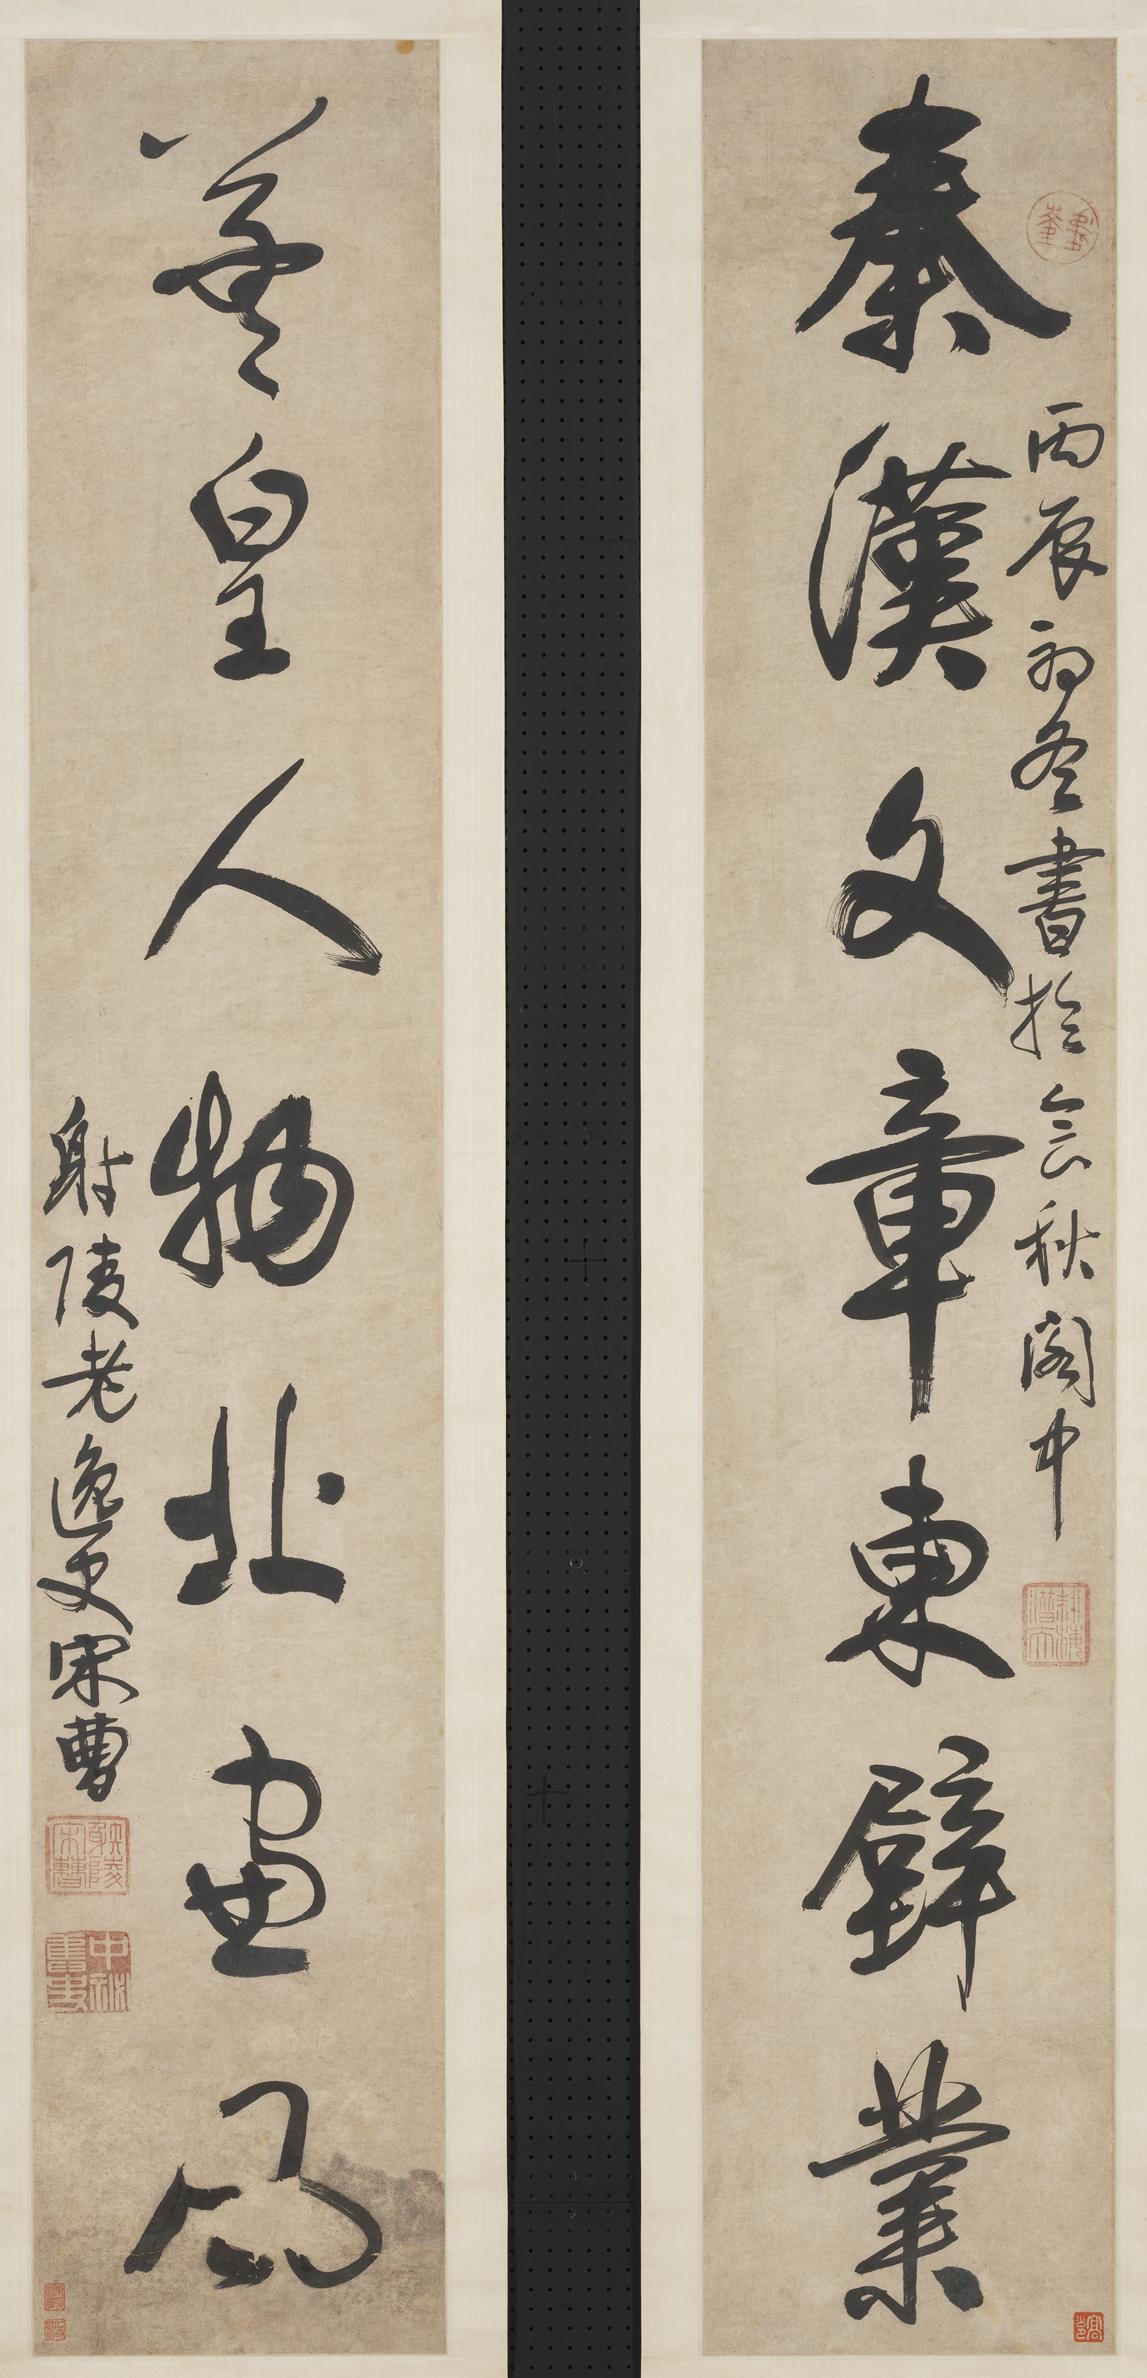 丙辰初冬書於會秋閣中
耕海潛夫
秦漢文章東壁業
羲皇人物北窗風
射陵老逸史宋曹
射陵宋曹